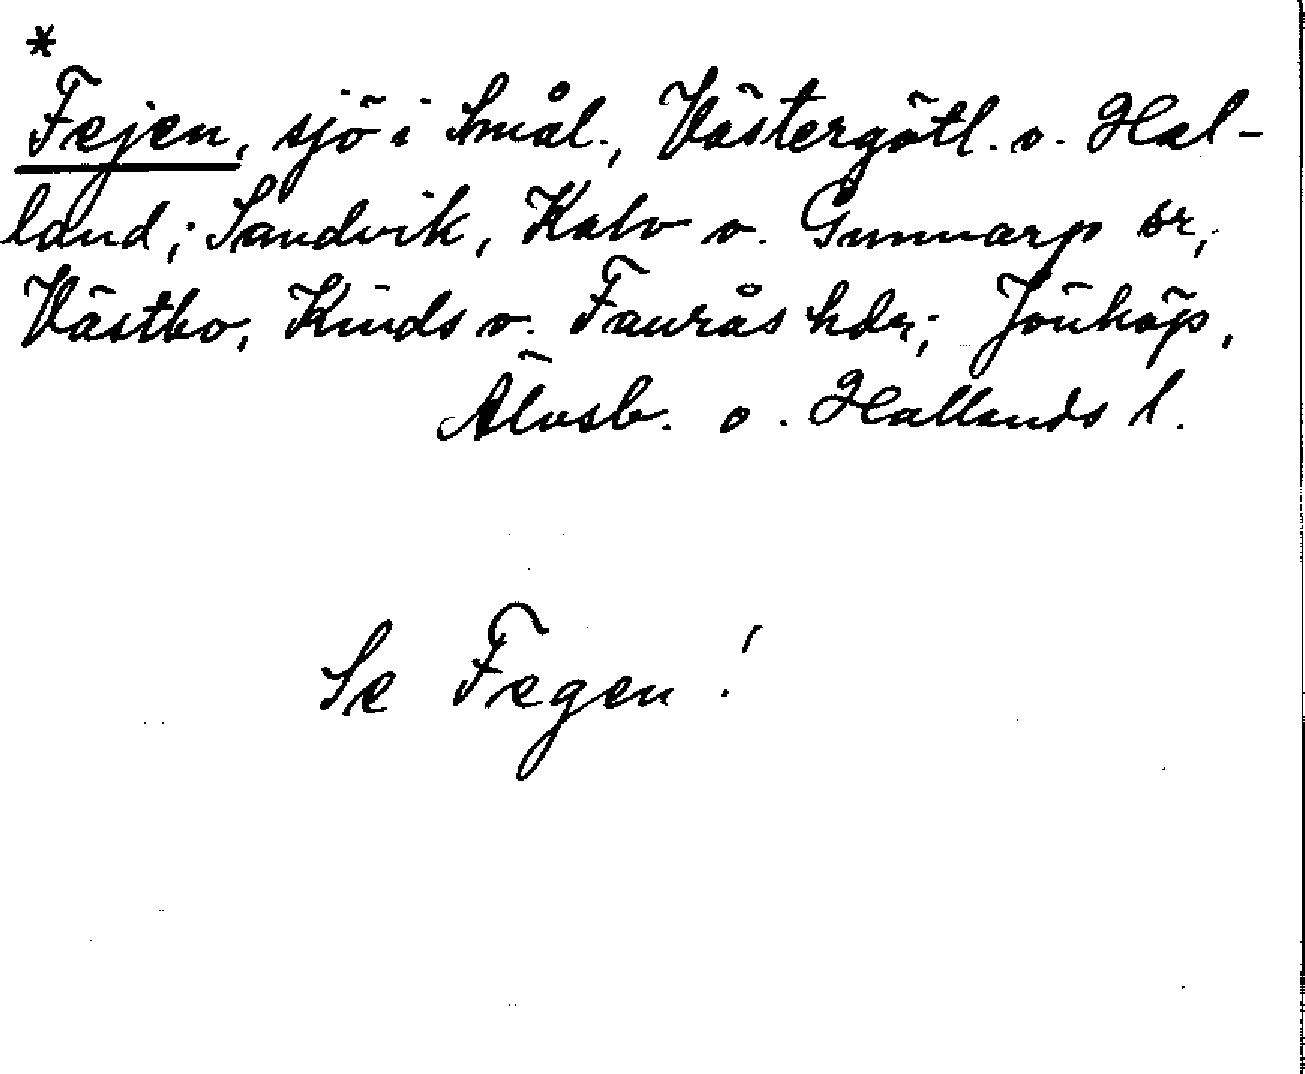 *
Fejen, sjö i Smål., Västergötl. o. Hal-
land; Sandvik, Kalv o. Gunnarp sr,
Västbo, Kinds o. Faurås hdr; Jönköp,
Älvsb. o. Hallands l.
Se Fegen!